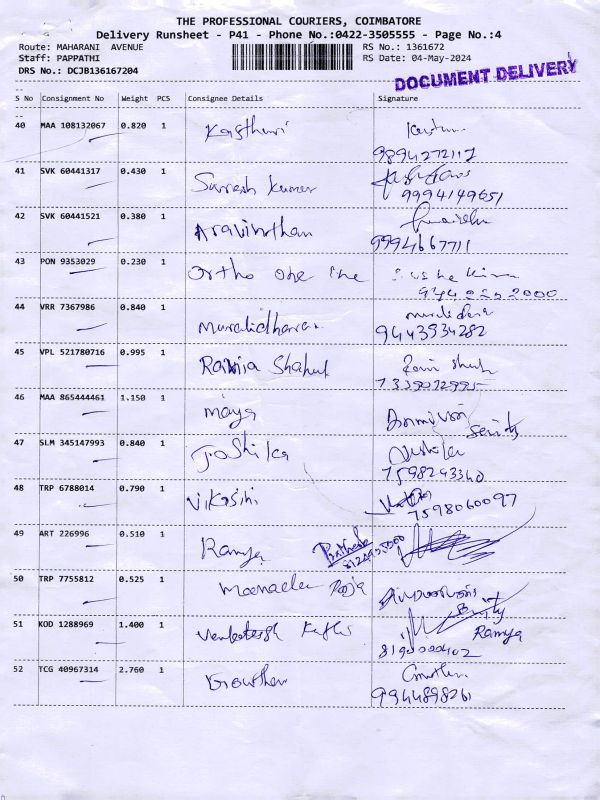 THE PROFESSIONAL COURIERS, COIMBATORE
Delivery Runsheet - P41 - Phone No.:0422-3505555 - Page No.:4
Route: MAHARANI AVENUE
RS No.: 1361672
Staff: PAPPATHI
RS Date: 04-May-2024
DRS No.: DCJB136167204
DOCUMENT DELIVERY
S No Consignment No Weight PCS Consignee Details Signature
40 MAA 108132067 0.820 1 Kasthuri
9894272117
41 SVK 60441317 0.430 1 Suresh Kumar
9994149651
42 SVK 60441521 0.380 1 Aravinthan
9994667711
43 PON 9353029 0.230 1 Ortho one
44 VRR 7367986 0.840 1 Muralidharan
9443534282
45 VPL 521780716 0.995 1 Shahul
7339072995
46 MAA 865444461 1.150 1 Maya
47 SLM 345147993 0.840 1 Joshika
7598243340
48 TRP 6788014 0.790 1 Vikasini
7598060097
49 ART 226996 0.510 1 Ramya
50 TRP 7755812 0.525 1 Pooja
51 KOD 1288969 1.400 1 Venkatesh
Ramya
8190000402
52 TCG 40967314 2.760 1 Gowtham
9944898261